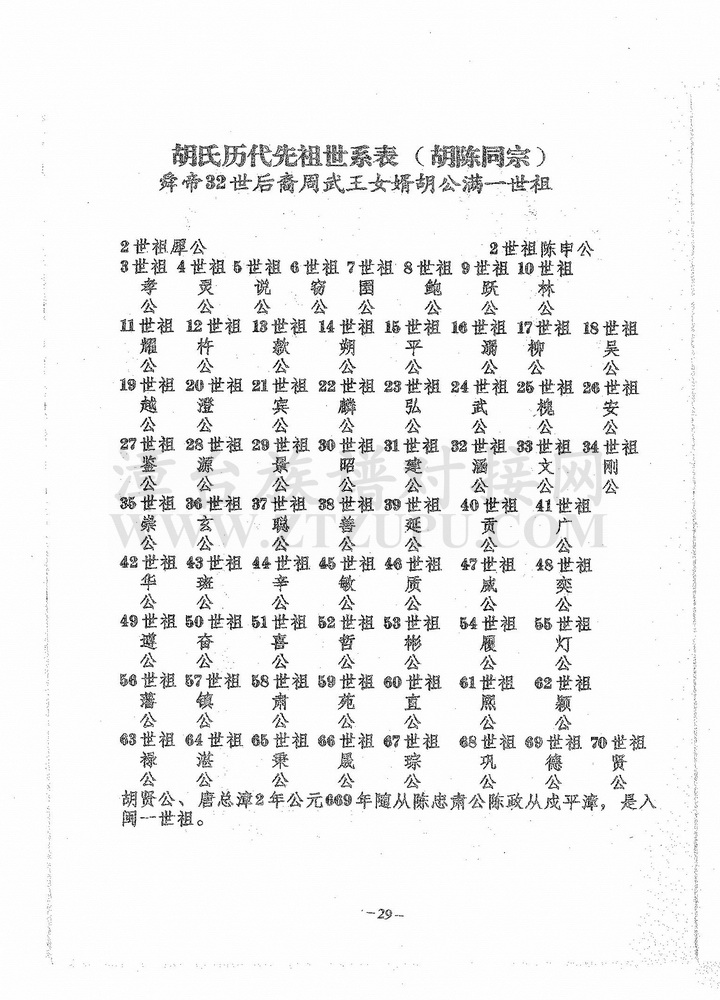 胡氏历代先祖世系表（胡陈同宗）
舜帝32世后裔周武王女婿胡公满一世祖
2世祖犀公 2世祖陈申公
3世祖 4世祖 5世祖 6世祖 7世祖 8世祖 9世祖 10世祖
孝 灵 说 窃 图 鲍 跃 林
公 公 公 公 公 公 公 公
11世祖 12世祖 13世祖 14世祖 15世祖 16世祖 17世祖 18世祖
耀 杵 款 朔 平 溺 柳 吴
公 公 公 公 公 公 公 公
19世祖 20世祖 21世祖 22世祖 23世祖 24世祖 25世祖 26世祖
越 澄 宾 麟 弘 武 槐 安
公 公 公 公 公 公 公 公
27世祖 28世祖 29世祖 30世祖 31世祖 32世祖 33世祖 34世祖
鉴 源 景 昭 建 涵 文 刚
公 公 公 公 公 公 公 公
35世祖 36世祖 37世祖 38世祖 39世祖 40世祖 41世祖
崇 玄 聪 善 延 贡 广
公 公 公 公 公 公 公
42世祖 43世祖 44世祖 45世祖 46世祖 47世祖 48世祖
华 班 辛 敏 质 威 奕
公 公 公 公 公 公 公
49世祖 50世祖 51世祖 52世祖 53世祖 54世祖 55世祖
遵 奋 喜 哲 彬 履 灯
公 公 公 公 公 公 公
56世祖 57世祖 58世祖 59世祖 60世祖 61世祖 62世祖
藩 镇 肃 苑 直 熙 颖
公 公 公 公 公 公 公
63世祖 64世祖 65世祖 66世祖 67世祖 68世祖 69世祖 70世祖
禄 湛 秉 晟 琮 巩 德 贤
公 公 公 公 公 公 公 公
胡贤公、唐总漳2年公元669年随从陈忠肃公陈政从戍平漳，是入
闽一世祖。
-29-
漳台族谱对接网
WWW.ZTZUPU.COM